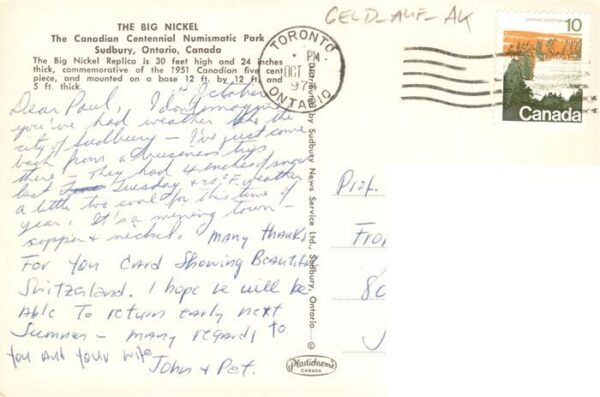 THE BIG NICKEL
The Canadian Centennial Numismatic Park
Sudbury, Ontario, Canada
The Big Nickel Replica is 30 feet high and 24 inches
thick, commemorative of the 1951 Canadian five cent
piece, and mounted on a base 12 ft. by 12 ft. and
5 ft. thick.
GELD-AUF-AK
TORONTO
PM
OCT
197
ONTARIO
10
Canada
October
Dear Paul, I don't imagine
you've had weather like the
city of Sudbury - I've just come
back from a business trip
there - They had 4 inches of snow
last Tuesday & 20°F. weather
a little too cool for this time of
year. It's a mining town -
copper & nickel. Many thanks
For you card showing Beautiful
Switzerland. I hope we will be
Able to return early next
Summer - many regards to
you and your wife
John & Pat.
Distributed by Sudbury News Service Ltd., Sudbury, Ontario
Prof.
Fro
80
Plastichrome
CANADA